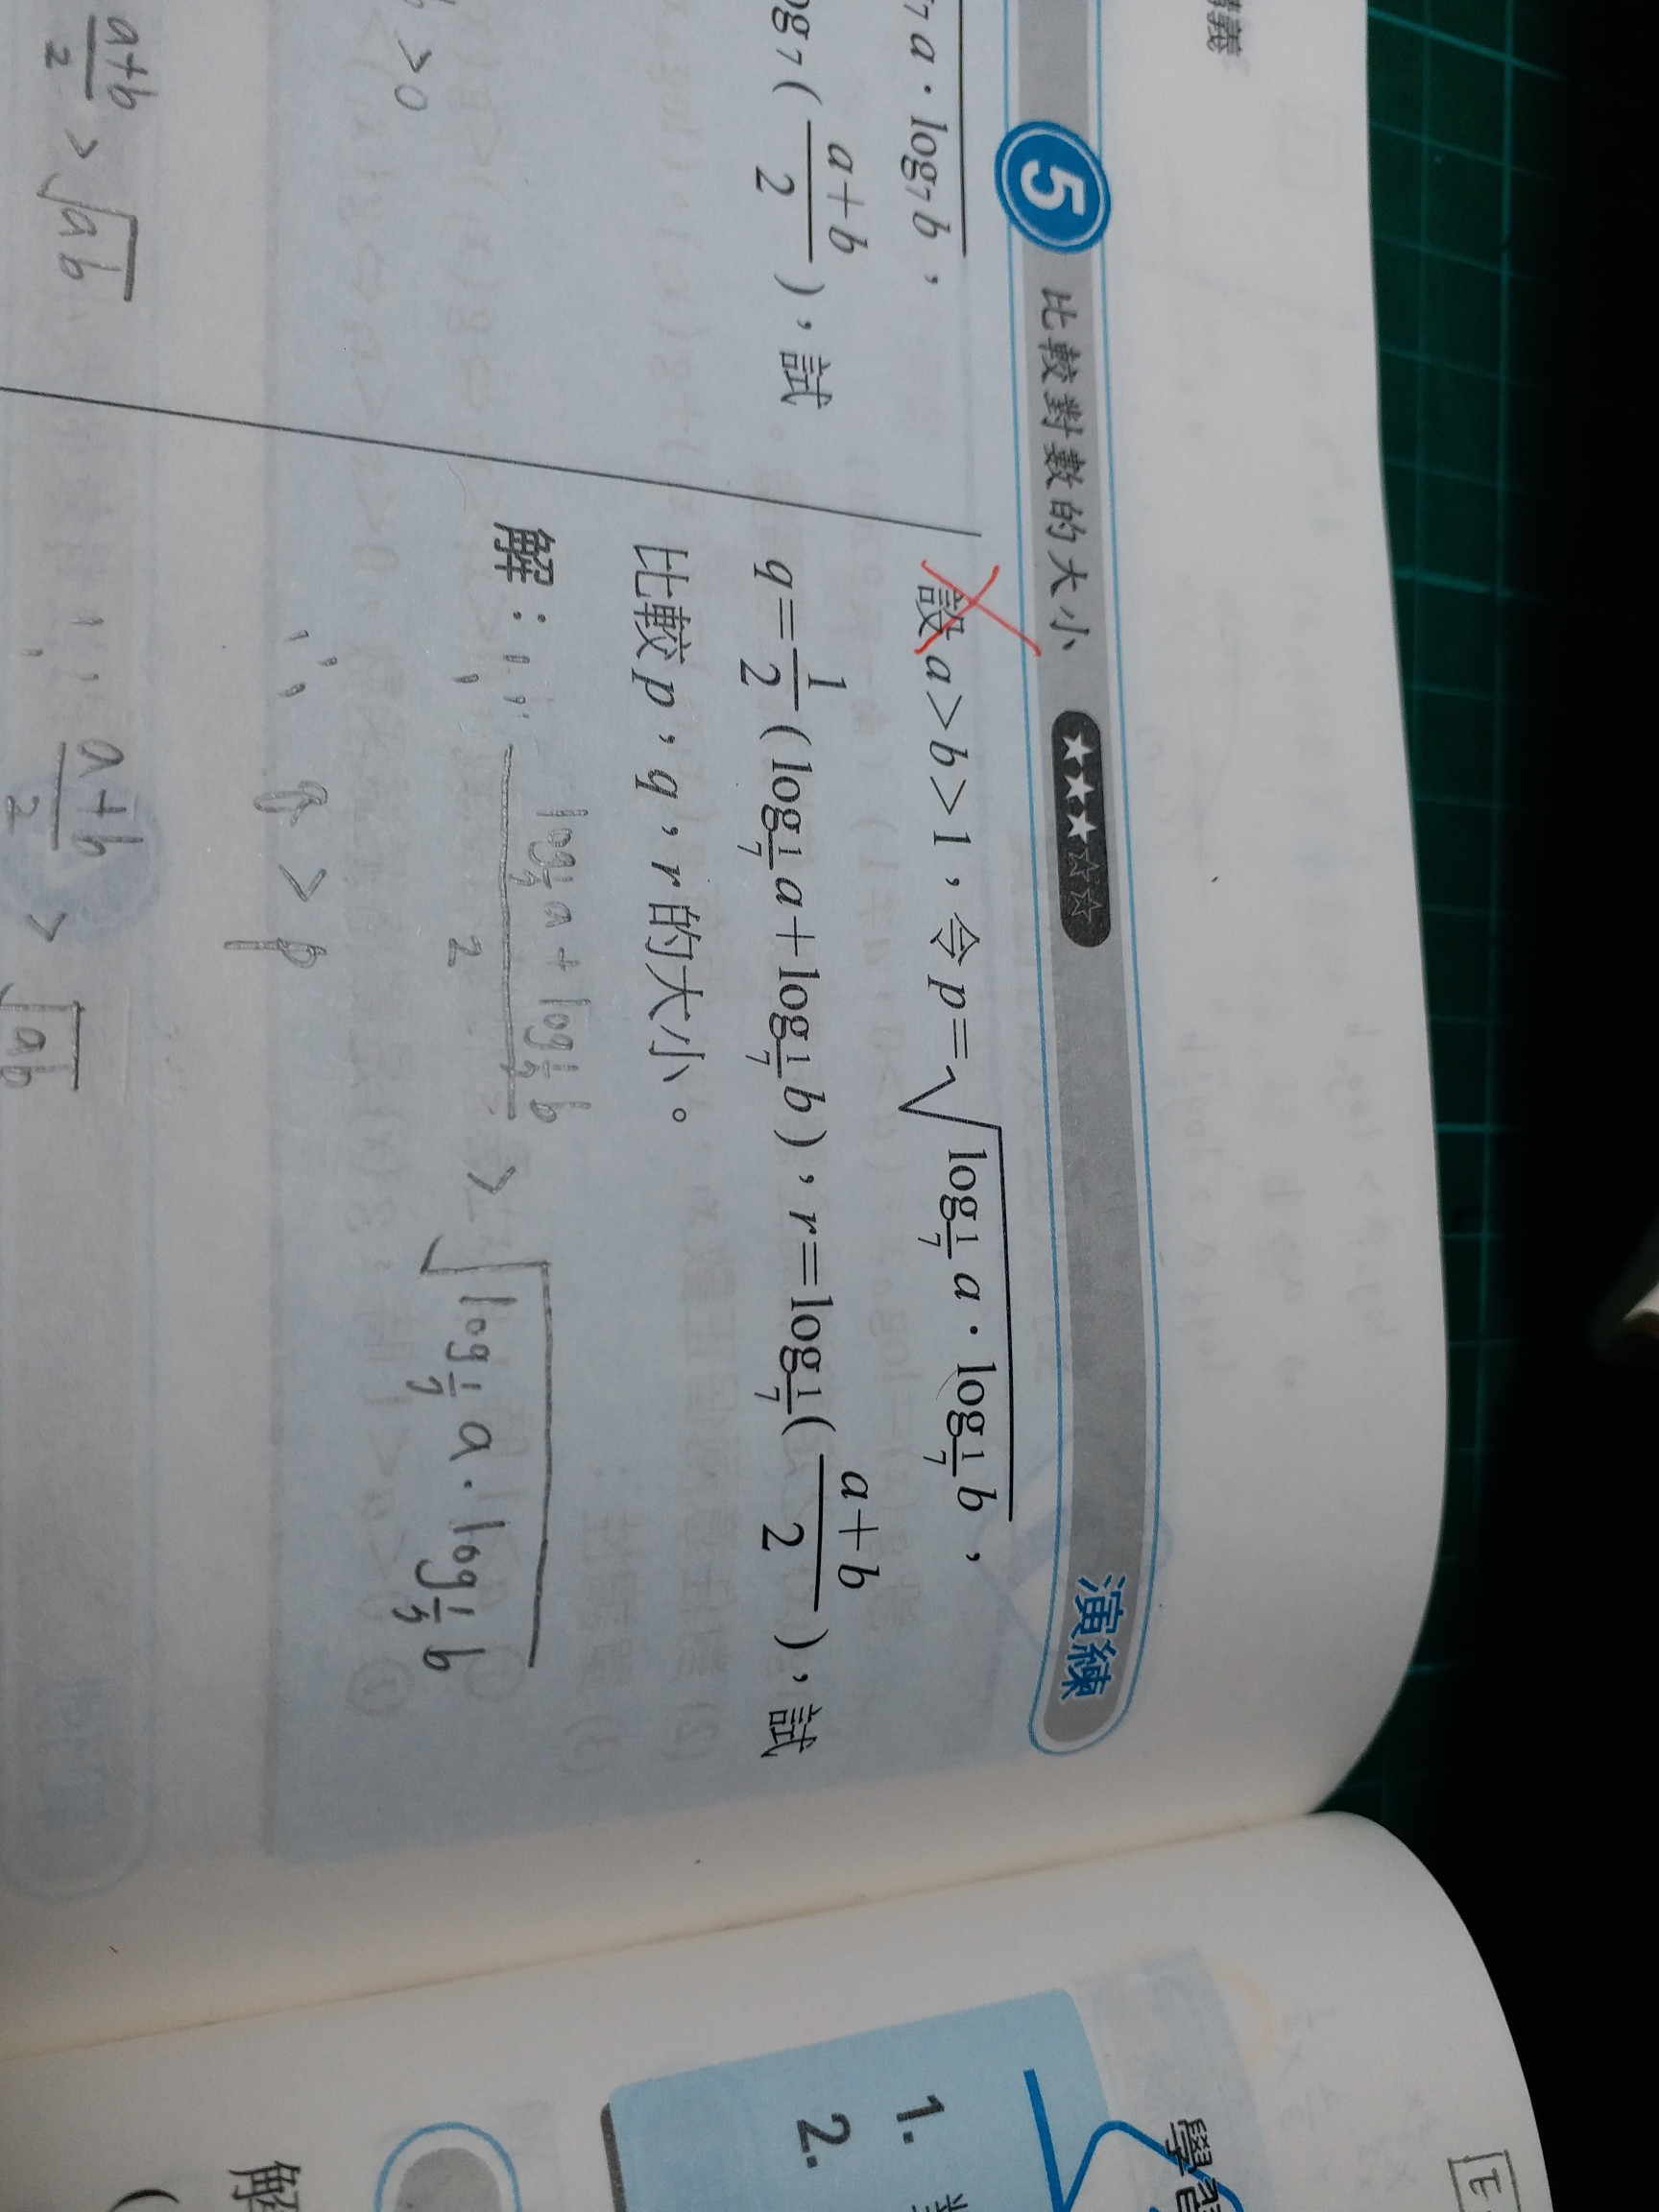 講義
5 比較對數的大小 ★★★☆☆ 演練
₇a·log₇b，
og₇(\frac{a+b}{2})，試
>0
\frac{a+b}{2} > \sqrt{ab}
設a>b>1，令p=\sqrt{log_{\frac{1}{7}}a·log_{\frac{1}{7}}b}，
q=\frac{1}{2}(log_{\frac{1}{7}}a+log_{\frac{1}{7}}b)，r=log_{\frac{1}{7}}(\frac{a+b}{2})，試
比較p，q，r的大小。
解：∵ \frac{log_{\frac{1}{7}}a + log_{\frac{1}{7}}b}{2} > \sqrt{log_{\frac{1}{7}}a·log_{\frac{1}{7}}b}
∴ q > p
∵ \frac{a+b}{2} > \sqrt{ab}
學習
1.
2.
解